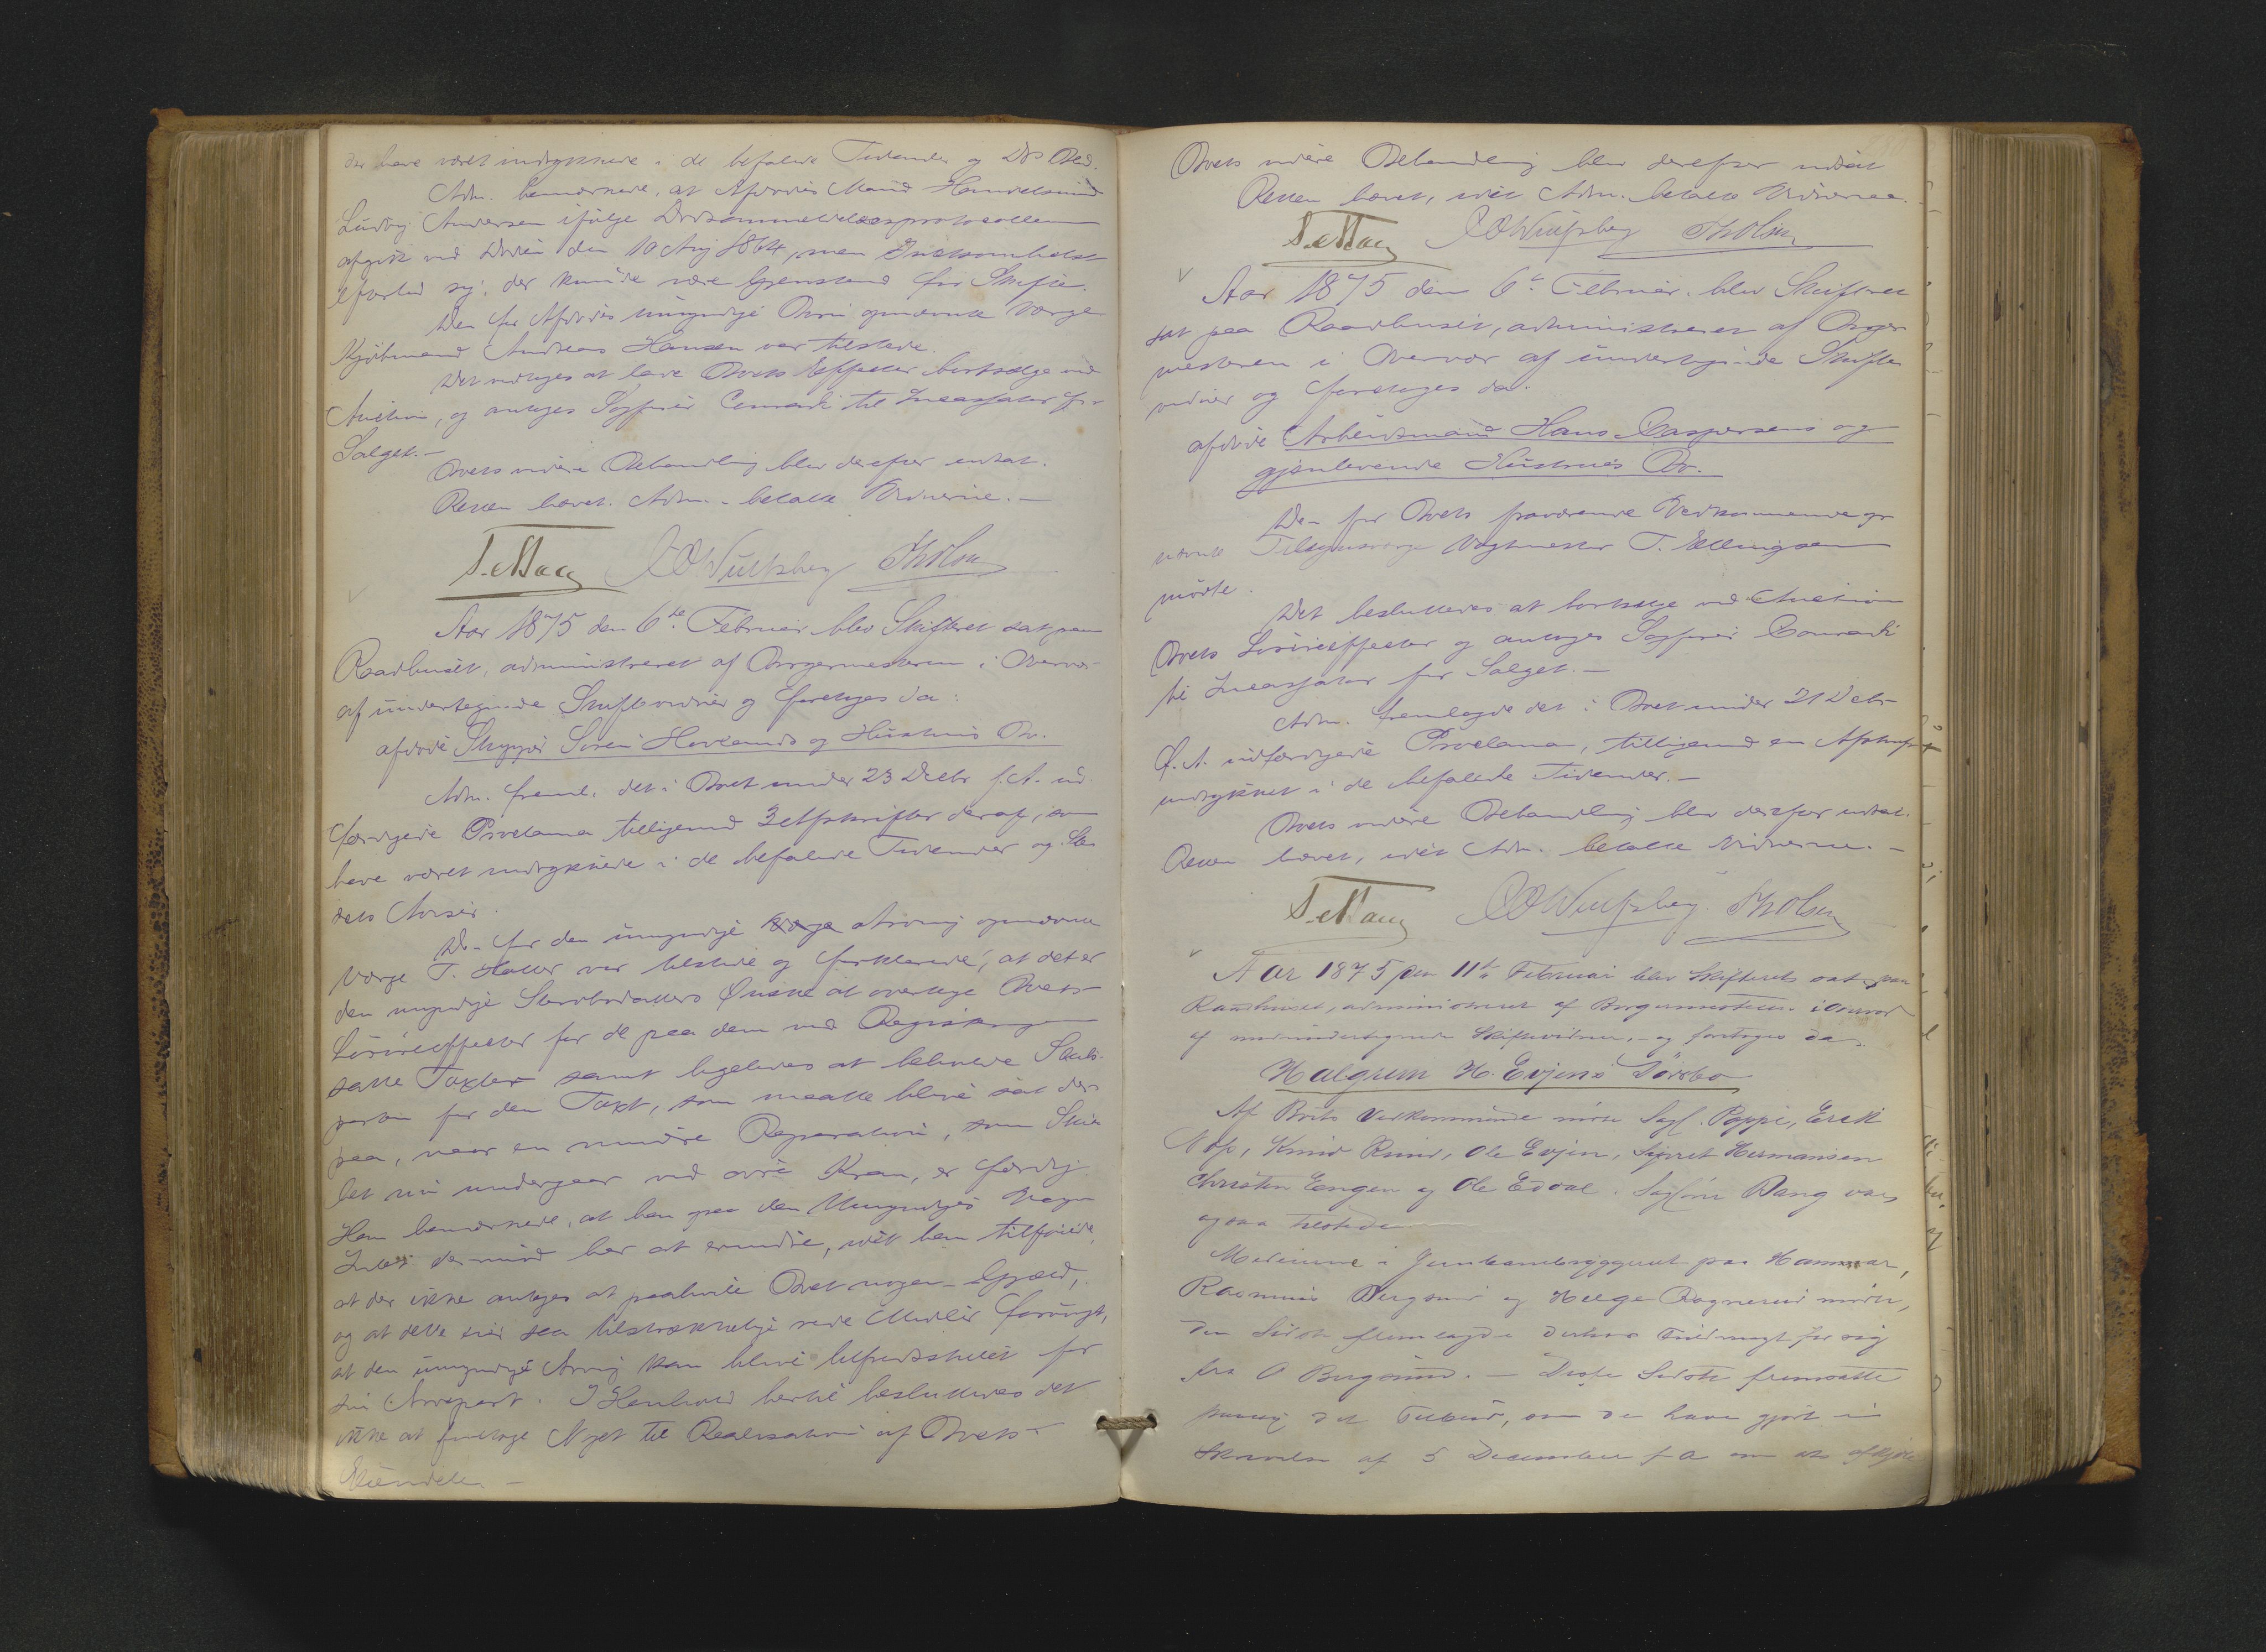 der have været indrykkede i de befalede Tidender og
Adm. bemærkede, at Afdødes Mand Handelsmand
Ludvig Andersen ifølge Dødsanmeldelsesprotocollen
afgik ved Døden den 10 Aug 1864, men Intetsomhelst
efterlod sig, der kunde være Gjenstand for Skifte.
Den for Afdødes umyndige Børn opnævnte Værge
Kjøbmand Andreas Hansen var tilstede.
Det vedtoges at lade Boets Effecter bortsælge ved
Auction, og antoges Sagfører Conradi til Incassator for
Salget.—
Boets videre Behandling blev derefter udsat.
Retten hævet. Adm. betalte Vidnerne.—
Aar 1875 den 6te Februar blev Skifteret sat paa
Raadhuset, administreret af Borgermesteren i Overvær
af undertegnede Skiftevidner og foretoges da:
afdøde Skipper Søren Hovlands og Hustrus Bo.
Adm. freml. det i Boet under 23 Decbr f.A. ud-
færdigede Proclama tilligemed 3 Afskrifter deraf, som
have været indrykkede i de befalede Tidender og Sta-
dets Aviser.
Den for den umyndige Arving opnævnte
Værge T. var tilstede og forklarede, at det er
den umyndige Ønske at overtage Boets
Løsøreeffecter for de paa dem ved Registreringen
satte Taxter samt ligeledes at beholde Skibs-
parten for den Taxt, som maatte blive sat der-
paa, naar en mindre Reparation, som Ski-
bet nu undergaar ved Kran, er færdig.
Han bemærkede, at han paa den Umyndiges Vegne
Intet dermod har at erindre, idet han tilføiede,
at der ikke antages at paahvile Boet nogen Gjæld,
og at dette eier saa tilstrækkelige rede Midler forøvrigt,
at den umyndige Arving kan blive tilfredsstillet for
sin Arvepart. I Henhold hertil besluttedes det
ikke at foretage Noget til Realisation af Boets
Eiendele.—
Boets videre Behandling blev derefter udsat
Retten hævet, idet Adm. betalte Vidnerne.
Aar 1875 den 6te Februar blev Skifteret
sat paa Raadhuset, administreret af Borger-
mesteren i Overvær af undertegnede Skifte-
vidner og foretoges da:
afdøde Arbeidsmand Hans Caspersens og
gjenlevende Hustrues Bo.
Den for Boets fraværende Vedkommende op-
nævnte Tilsynsværge Vagtmester T. Ellingsen
mødte.
Det besluttedes at bortsælge ved Auction
Boets Løsøreeffecter og antoges Sagfører Conradi
til Incassator for Salget.—
Adm. fremlagde det i Boet under 21 Decbr
f.A. udfærdigede Proclama, tilligemed en Afskrift
indrykket i de befalede Tidender.—
Boets videre Behandling blev derefter udsat.
Retten hævet, idet Adm. betalte Vidnerne.—
Aar 1875 den 11te Februar blev Skifteret sat paa
Raadhuset, administreret af Borgermesteren i Overvær
af medundertegnede Skiftevidner, og foretoges da
Halgrim H. Evjens Dødsbo
Af Boets Vedkommende mødte Sagf. Poppe, Erik
Knud Ruud, Ole Evjen, Sigvret Hermansen
Christen Engen og Ole Edval. Sagfører Wang var
ogsaa tilstede
i Jernbanebryggeriet paa Hammar,
Rasmus Bergsund og Helge Ragnerud mødte,
den Sidste fremlagde derhos Fuldmagt for sig
fra O Bergsund.— Disse Sidste fremsatte
paany det Tilbud, som de have gjort i
Skrivelse af 5 December f A om at afkjøbe